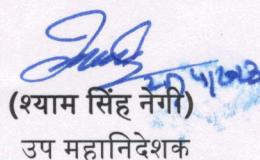 (श्याम सिंह नेगी)
उप महानिदेशक